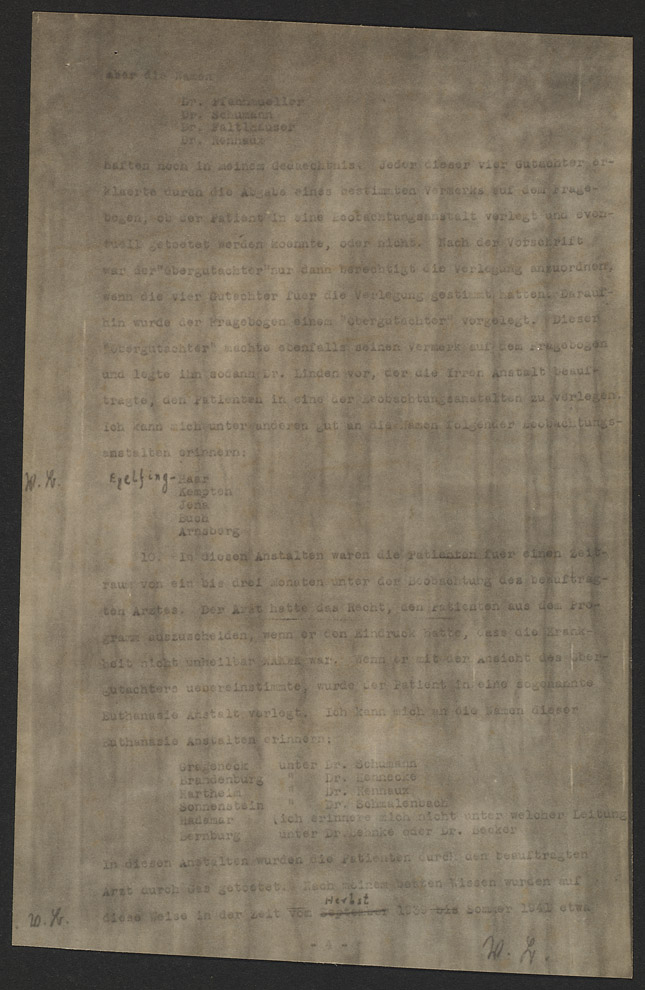 aber die Namen
Dr. Pfannmueller
Dr. Schumann
Dr. Faltlhauser
Dr. Rennaux
haften noch in meinem Gedaechtnis. Jeder dieser vier Gutachter er-
klaerte durch die Abgabe eines bestimmten Vermerks auf dem Frage-
bogen, ob der Patient in eine Beobachtungsanstalt verlegt und even-
tuell getoetet werden koennte, oder nicht. Nach der Vorschrift
war der "Obergutachter" nur dann berechtigt die Verlegung anzuordnen,
wenn die vier Gutachter fuer die Verlegung gestimmt hatten. Darauf-
hin wurde der Fragebogen einem "Obergutachter" vorgelegt. Dieser
"Obergutachter" machte ebenfalls seinen Vermerk auf dem Fragebogen
und legte ihn sodann Dr. Linden vor, der die Irren Anstalt beauf-
tragte, den Patienten in eine der Beobachtungsanstalten zu verlegen.
Ich kann mich unter anderen gut an die Namen folgender Beobachtungs-
anstalten erinnern:
W. H. Egelfing-Haar
Kempten
Jena
Buch
Arnsberg
10. In diesen Anstalten waren die Patienten fuer einen Zeit-
raum von ein bis drei Monaten unter der Beobachtung des beauftrag-
ten Arztes. Der Arzt hatte das Recht, den Patienten aus dem Pro-
gramm auszuscheiden, wenn er den Eindruck hatte, dass die Krank-
heit nicht unheilbar war. Wenn er mit der Ansicht des Ober-
gutachters uebereinstimmte, wurde der Patient in eine sogenannte
Euthanasie Anstalt verlegt. Ich kann mich an die Namen dieser
Euthanasie Anstalten erinnern:
Grafeneck unter Dr. Schumann
Brandenburg " Dr. Hennecke
Hartheim " Dr. Rennaux
Sonnenstein " Dr. Schmalenbach
Hadamar (ich erinnere mich nicht unter welcher Leitung
Bernburg unter Dr. Behnke oder Dr. Becker
In diesen Anstalten wurden die Patienten durch den beauftragten
Arzt durch Gas getoetet. Nach meinem besten Wissen wurden auf
Herbst
W. H. diese Weise in der Zeit vom September 1939 bis Sommer 1941 etwa
- 4 -
W. H.